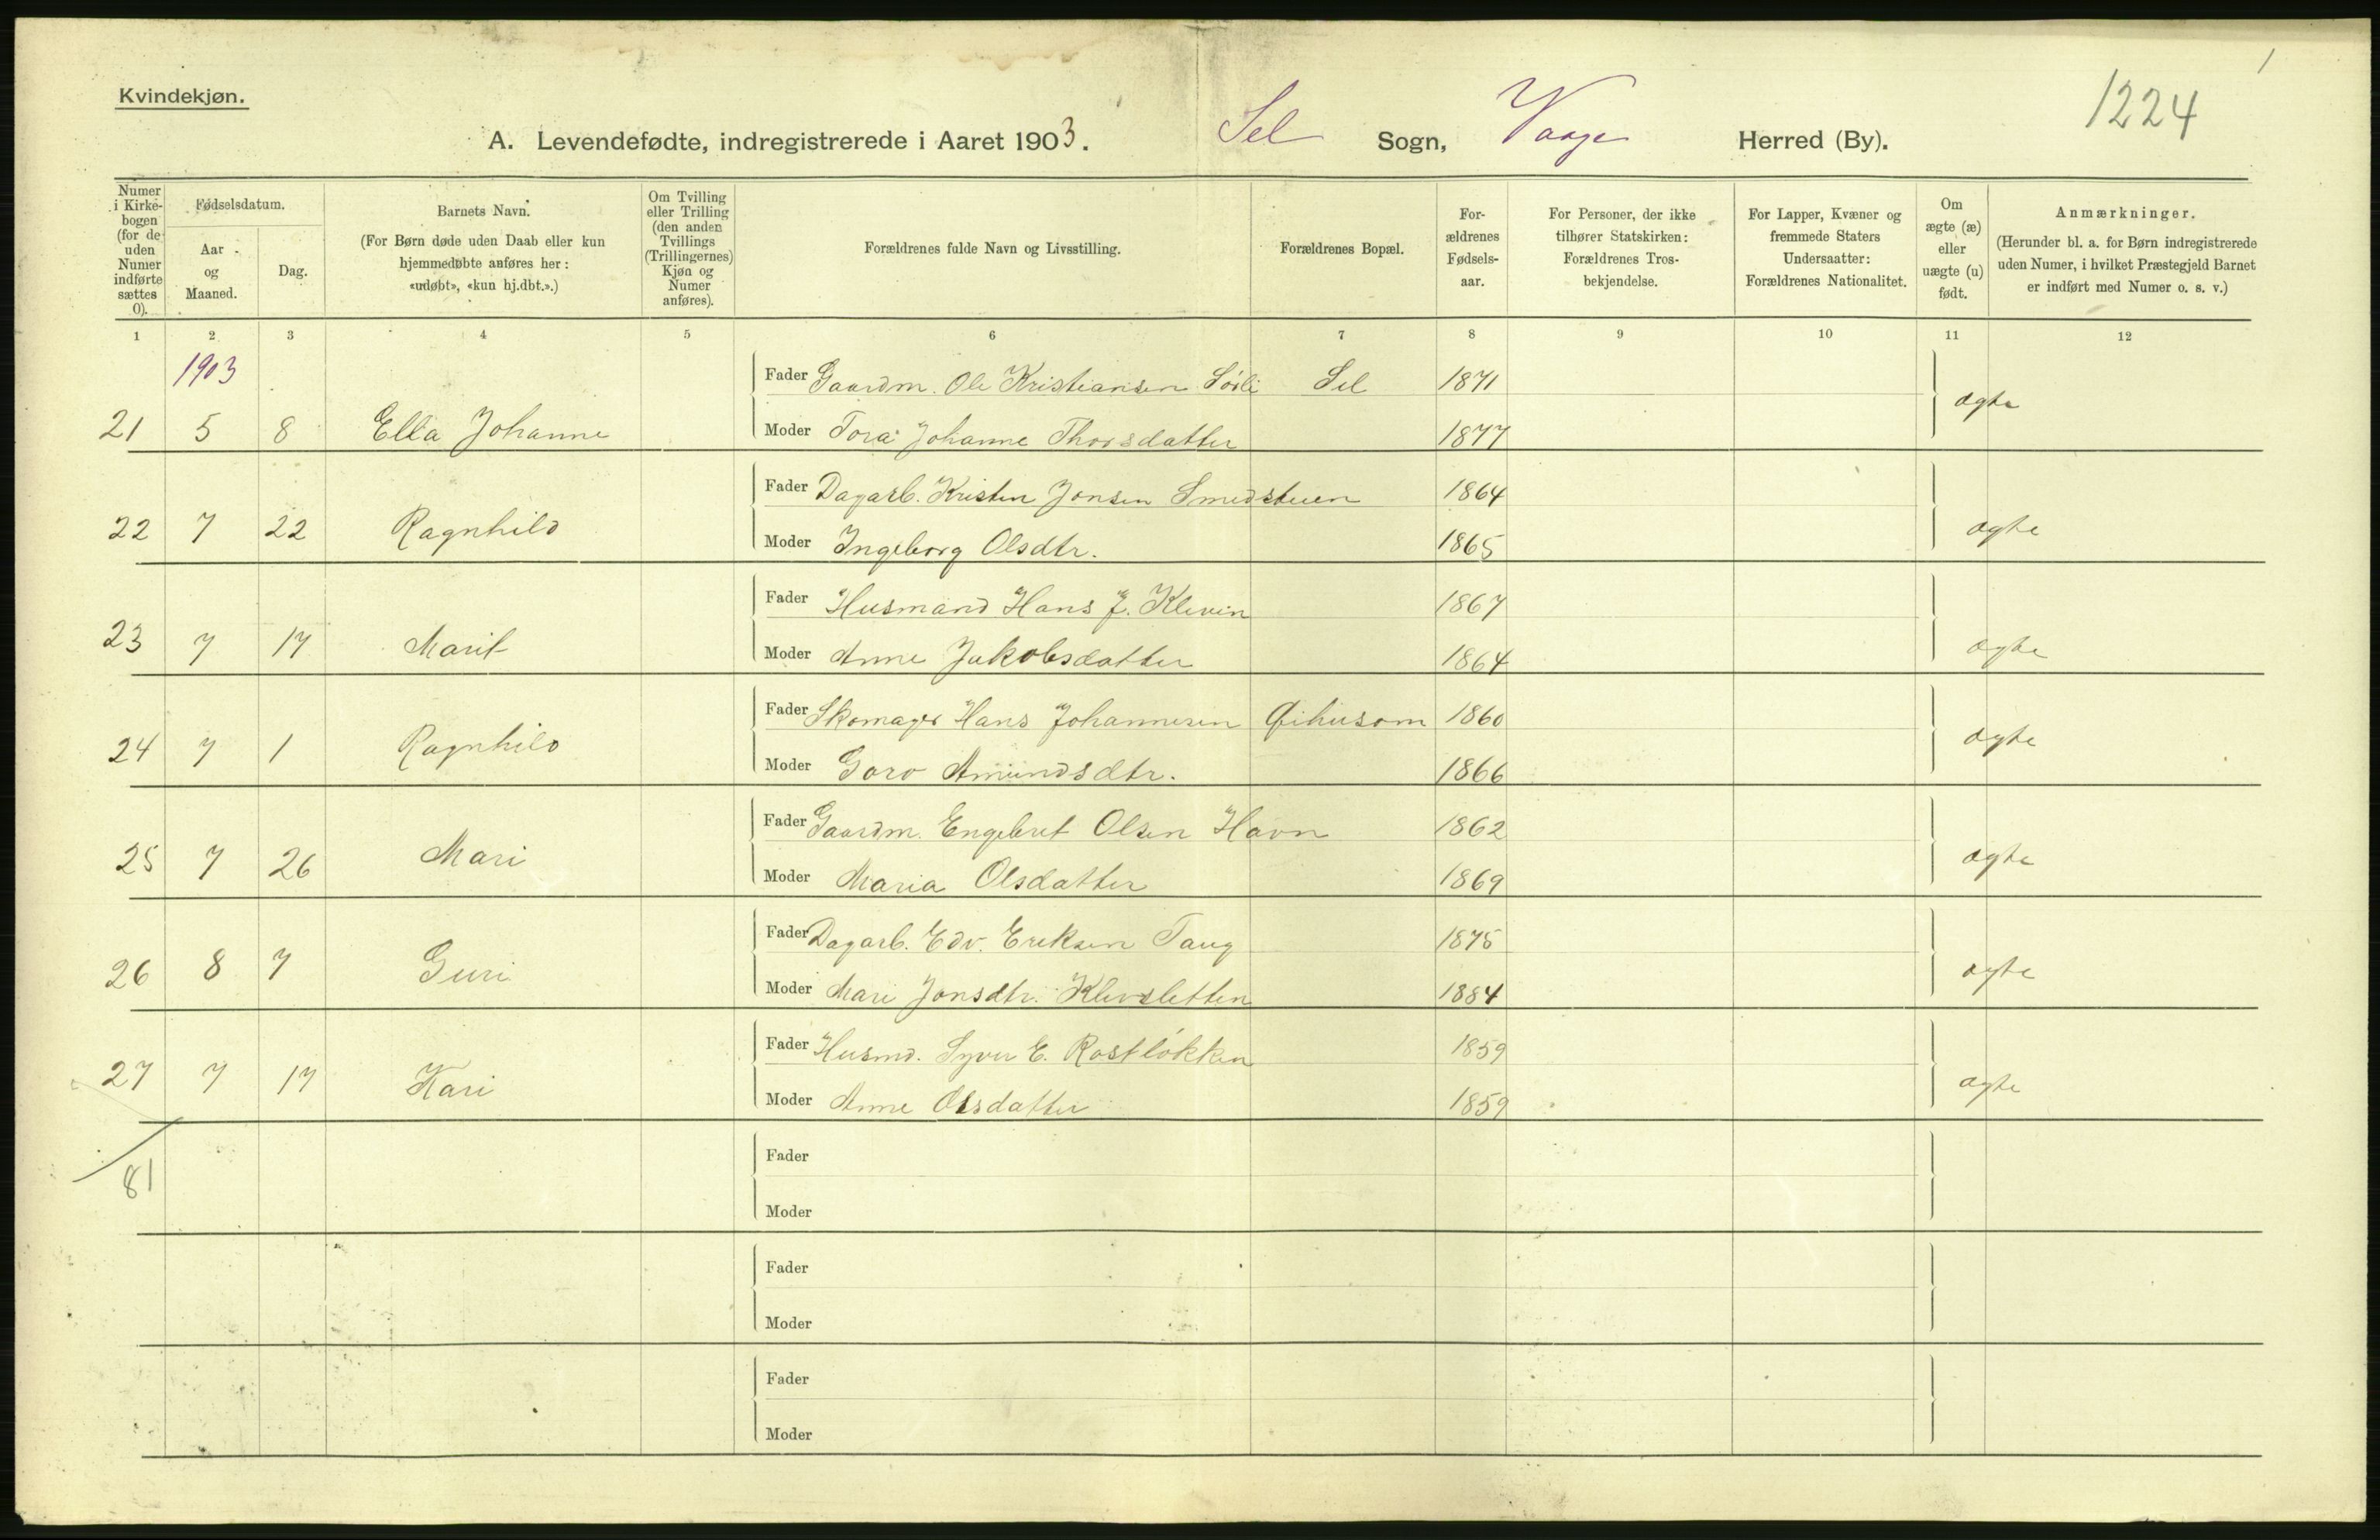 1224
Kvindekjøn.
A. Levendefødte, indregistrerede i Aaret 1903. Sel Sogn, Vaage Herred (By).
Numer i Kirkebogen (for de uden Numer indførte sættes 0).
Fødselsdatum.
Aar og Maaned.
Dag.
Barnets Navn.
(For Børn døde uden Daab eller kun hjemmedøbte anføres her: «udøbt», «kun hj.dbt.».)
Om Tvilling eller Trilling (den anden Tvillings (Trillingernes) Kjøn og Numer anføres).
Forældrenes fulde Navn og Livsstilling.
Forældrenes Bopæl.
For-ældrenes Fødsels-aar.
For Personer, der ikke tilhører Statskirken: Forældrenes Tros-bekjendelse.
For Lapper, Kvæner og fremmede Staters Undersaatter: Forældrenes Nationalitet.
Om ægte (æ) eller uægte (u) født.
Anmærkninger.
(Herunder bl. a. for Børn indregistrerede uden Numer, i hvilket Præstegjeld Barnet er indført med Numer o. s. v.)
1 2 3 4 5 6 7 8 9 10 11 12
1903
Fader Gaardm. Ole Kristiansen Sørli Sel 1871
21 5 8 Ella Johanne Moder Tora Johanne Thorsdatter 1877 ægte
Fader Dagarb. Kristen Jonsen Smedstuen 1864
22 7 22 Ragnhild Moder Ingeborg Olsdtr. 1865 ægte
Fader Husmand Hans J. Kleven 1867
23 7 17 Marit Moder Anne Jakobsdatter 1864 ægte
Fader Skomager Hans Johannesen 1860
24 7 1 Ragnhild Moder Goro Amundsdtr. 1866 ægte
Fader Gaardm. Engebret Olsen Havn 1862
25 7 26 Mari Moder Maria Olsdatter 1869 ægte
Fader Dagarb. Edv. Eriksen Taug 1875
26 8 7 Guri Moder Mari Jonsdtr. Klevsletten 1884 ægte
Fader Husmd. Syver E. Rostløkken 1859
27 7 17 Kari Moder Anne Olsdatter 1859 ægte
81
Fader
Moder
Fader
Moder
Fader
Moder